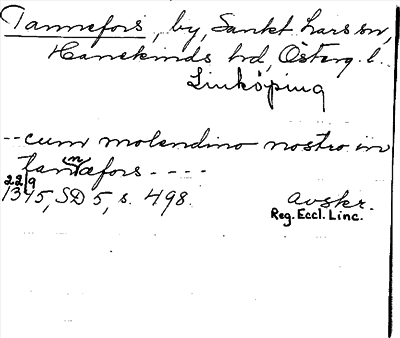 Tannefors, by, Sankt Lars sn,
Hanekinds hd, Österg. l.
Linköping
-- cum molendino nostro in
fannæfors ----
22/9
1345, SD 5, s. 498.
avskr.
Reg. Eccl. Linc.